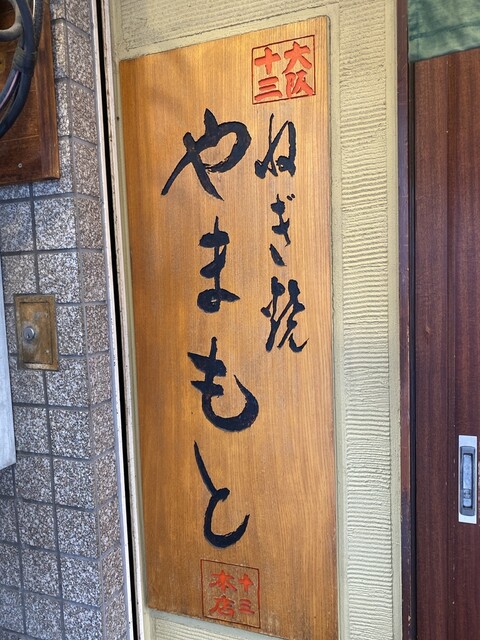 大阪
十三
ねぎ焼
やまもと
十三
本店